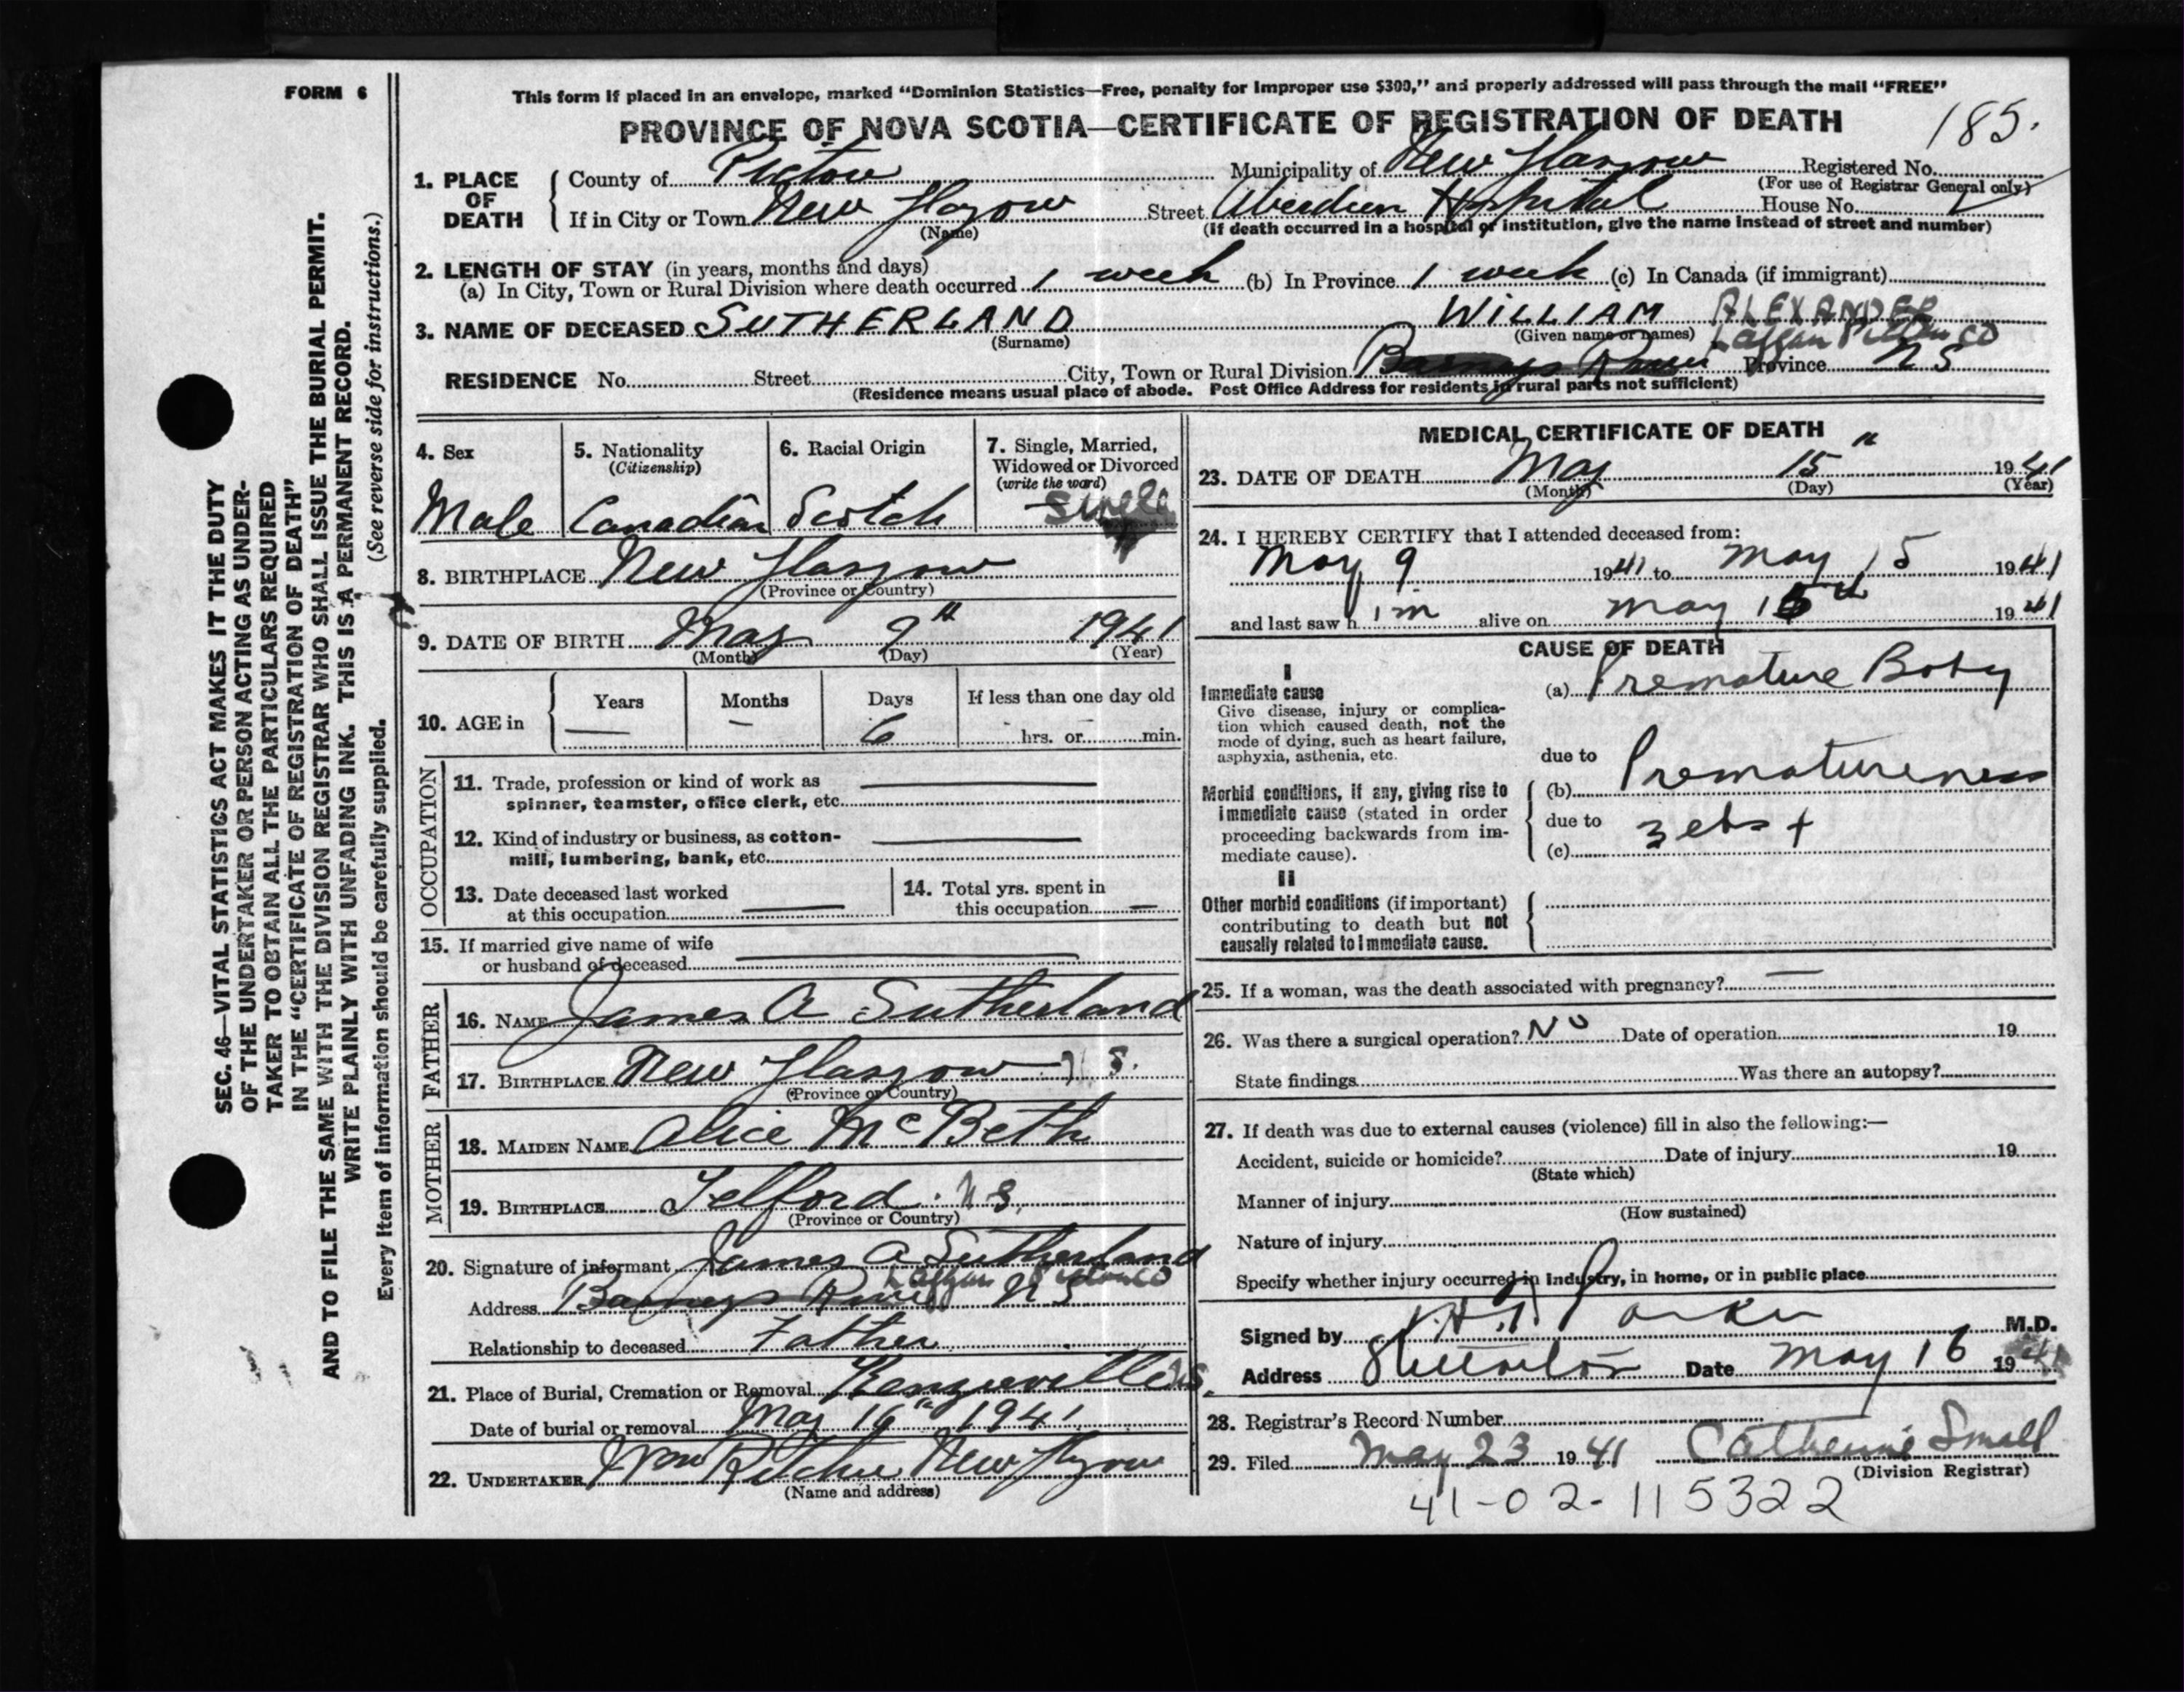 FORM 6
This form if placed in an envelope, marked "Dominion Statistics—Free, penalty for improper use $300," and properly addressed will pass through the mail "FREE"
PROVINCE OF NOVA SCOTIA—CERTIFICATE OF REGISTRATION OF DEATH
185.
1. PLACE OF DEATH
County of Pictou Municipality of New Glasgow Registered No.
(For use of Registrar General only)
If in City or Town New Glasgow Street Aberdeen Hospital House No.
(Name) (If death occurred in a hospital or institution, give the name instead of street and number)
2. LENGTH OF STAY (in years, months and days)
(a) In City, Town or Rural Division where death occurred 1 week (b) In Province 1 week (c) In Canada (if immigrant)
3. NAME OF DECEASED SUTHERLAND WILLIAM ALEXANDER
(Surname) (Given name or names) Laggan Pictou Co
RESIDENCE No. Street City, Town or Rural Division Barneys River Province N S
(Residence means usual place of abode. Post Office Address for residents in rural parts not sufficient)
4. Sex
Male
5. Nationality
(Citizenship)
Canadian
6. Racial Origin
Scotch
7. Single, Married,
Widowed or Divorced
(write the word)
Single
8. BIRTHPLACE New Glasgow
(Province or Country)
9. DATE OF BIRTH May 9th 1941
(Month) (Day) (Year)
10. AGE in
Years Months Days If less than one day old
— — 6 hrs. or min.
OCCUPATION
11. Trade, profession or kind of work as
spinner, teamster, office clerk, etc.
12. Kind of industry or business, as cotton-
mill, lumbering, bank, etc.
13. Date deceased last worked
at this occupation
14. Total yrs. spent in
this occupation
15. If married give name of wife
or husband of deceased
FATHER
16. NAME James A Sutherland
17. BIRTHPLACE New Glasgow N S.
(Province or Country)
MOTHER
18. MAIDEN NAME Alice McBeth
19. BIRTHPLACE Telford. N S.
(Province or Country)
20. Signature of informant James A Sutherland
Laggan Pictou Co
Address Barneys River N S
Relationship to deceased Father
21. Place of Burial, Cremation or Removal Kenzieville NS.
Date of burial or removal May 16th 1941
22. UNDERTAKER Wm Ritchie New Glasgow
(Name and address)
MEDICAL CERTIFICATE OF DEATH
23. DATE OF DEATH May 15th 1941
(Month) (Day) (Year)
24. I HEREBY CERTIFY that I attended deceased from:
May 9 1941 to May 15 1941
and last saw him alive on May 15th 1941
CAUSE OF DEATH
I
Immediate cause
Give disease, injury or complica-
tion which caused death, not the
mode of dying, such as heart failure,
asphyxia, asthenia, etc.
(a) Premature Baby
due to
Morbid conditions, if any, giving rise to
immediate cause (stated in order
proceeding backwards from im-
mediate cause).
(b) Prematureness
due to
(c)
II
Other morbid conditions (if important)
contributing to death but not
causally related to immediate cause.
25. If a woman, was the death associated with pregnancy? —
26. Was there a surgical operation? No Date of operation 19
State findings Was there an autopsy?
27. If death was due to external causes (violence) fill in also the following:—
Accident, suicide or homicide? Date of injury 19
(State which)
Manner of injury
(How sustained)
Nature of injury
Specify whether injury occurred in industry, in home, or in public place
Signed by Parker M.D.
Address Date May 16 1941
28. Registrar's Record Number
29. Filed May 23 1941 Catherine Small
(Division Registrar)
41-02-115322
SEC. 46—VITAL STATISTICS ACT MAKES IT THE DUTY
OF THE UNDERTAKER OR PERSON ACTING AS UNDER-
TAKER TO OBTAIN ALL THE PARTICULARS REQUIRED
IN THE "CERTIFICATE OF REGISTRATION OF DEATH"
AND TO FILE THE SAME WITH THE DIVISION REGISTRAR WHO SHALL ISSUE THE BURIAL PERMIT.
WRITE PLAINLY WITH UNFADING INK. THIS IS A PERMANENT RECORD.
(See reverse side for instructions.)
Every item of information should be carefully supplied.